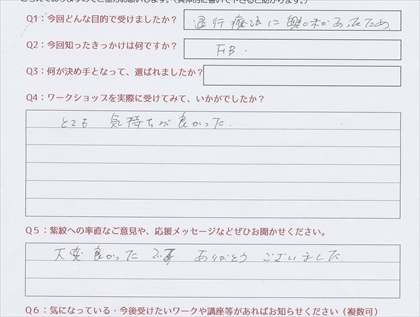 Q1：今回どんな目的で受けましたか？ 退行療法に興味があったため
Q2：今回知ったきっかけは何ですか？ FB.
Q3：何が決め手となって、選ばれましたか？
Q4：ワークショップを実際に受けてみて、いかがでしたか？
とても 気持ちが良かった.
Q5：紫紋への率直なご意見や、応援メッセージなどぜひお聞かせください。
大変良かった ありがとう ございました
Q6：気になっている・今後受けたいワークや講座等があればお知らせください（複数可）